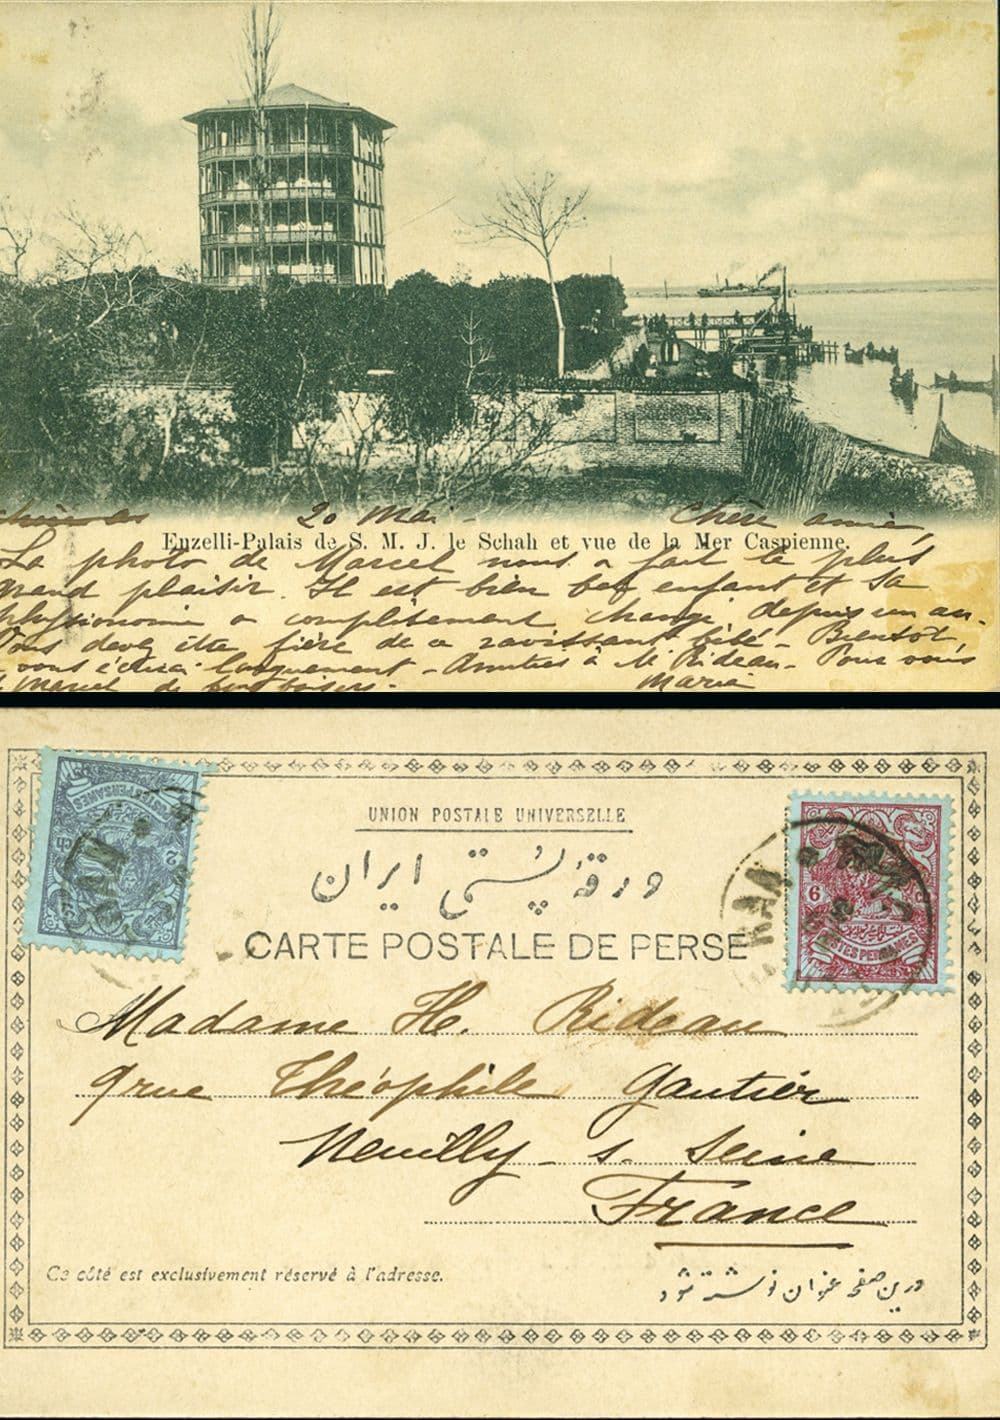 20 Mai - Chère amie
Enzelli-Palais de S. M. J. le Schah et vue de la Mer Caspienne.
La photo de Marcel nous a fait le plus
grand plaisir. Il est bien bel enfant et sa
physionomie a complitement changé depuis un an.
Vous devez être fière de ce ravissant bébé - Bientôt
vous écrirai longuement - Amitiés à M. Rideau - Pour vous
& Marcel de bons baisers - Maria
UNION POSTALE UNIVERSELLE
ورقهٔ پُستی ایران
CARTE POSTALE DE PERSE
POSTES PERSANES
2 ch
6 ch
POSTES PERSANES
Madame H. Rideau
9 rue Théophile Gautier
Neuilly - s. Seine
France
Ce côté est exclusivement réservé à l'adresse.
درین صفحه عنوان نوشته شود